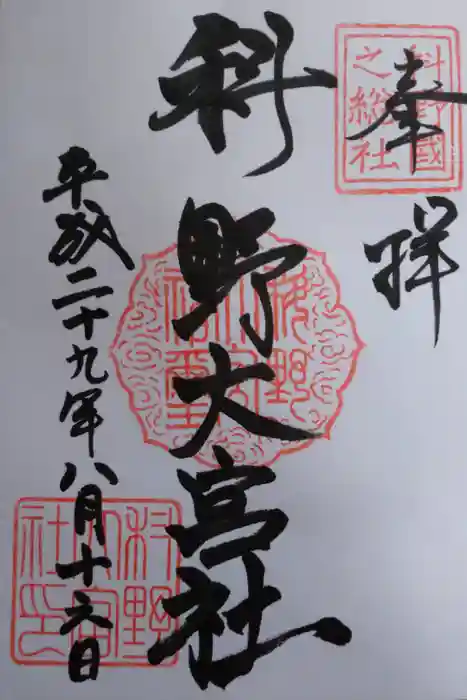 奉拝
科野國之総社
科野大宮社
平成二十九年八月十六日
科野大宮社印